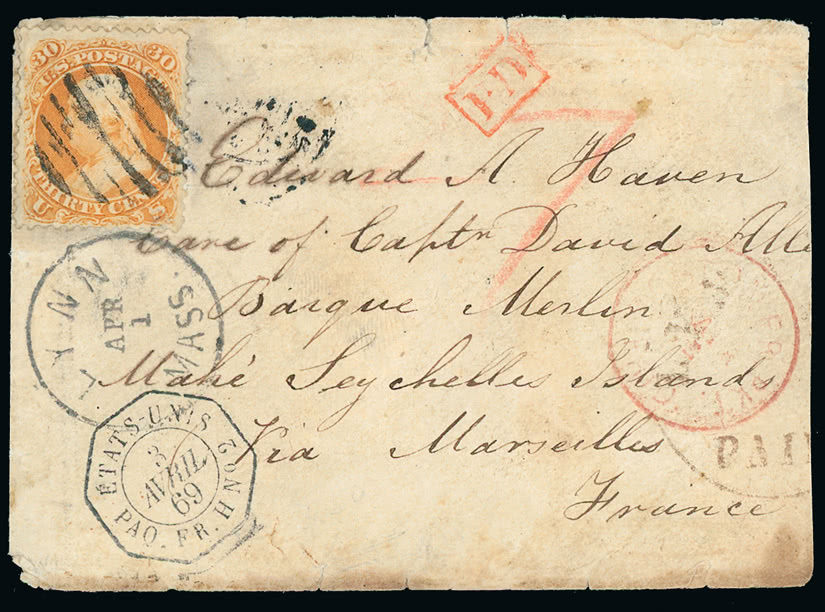 30 30
U.S. POSTA
THIRTY CEN
U S
PD
7
Edward A. Haven
Care of Captn David Alle
Barque Merlin
Mahé Seychelles Islands
Via Marseilles
France
LYNN MASS.
APR
1
ETATS-UNIS
3
AVRIL
69
PAQ. FR. H No 2
PAI